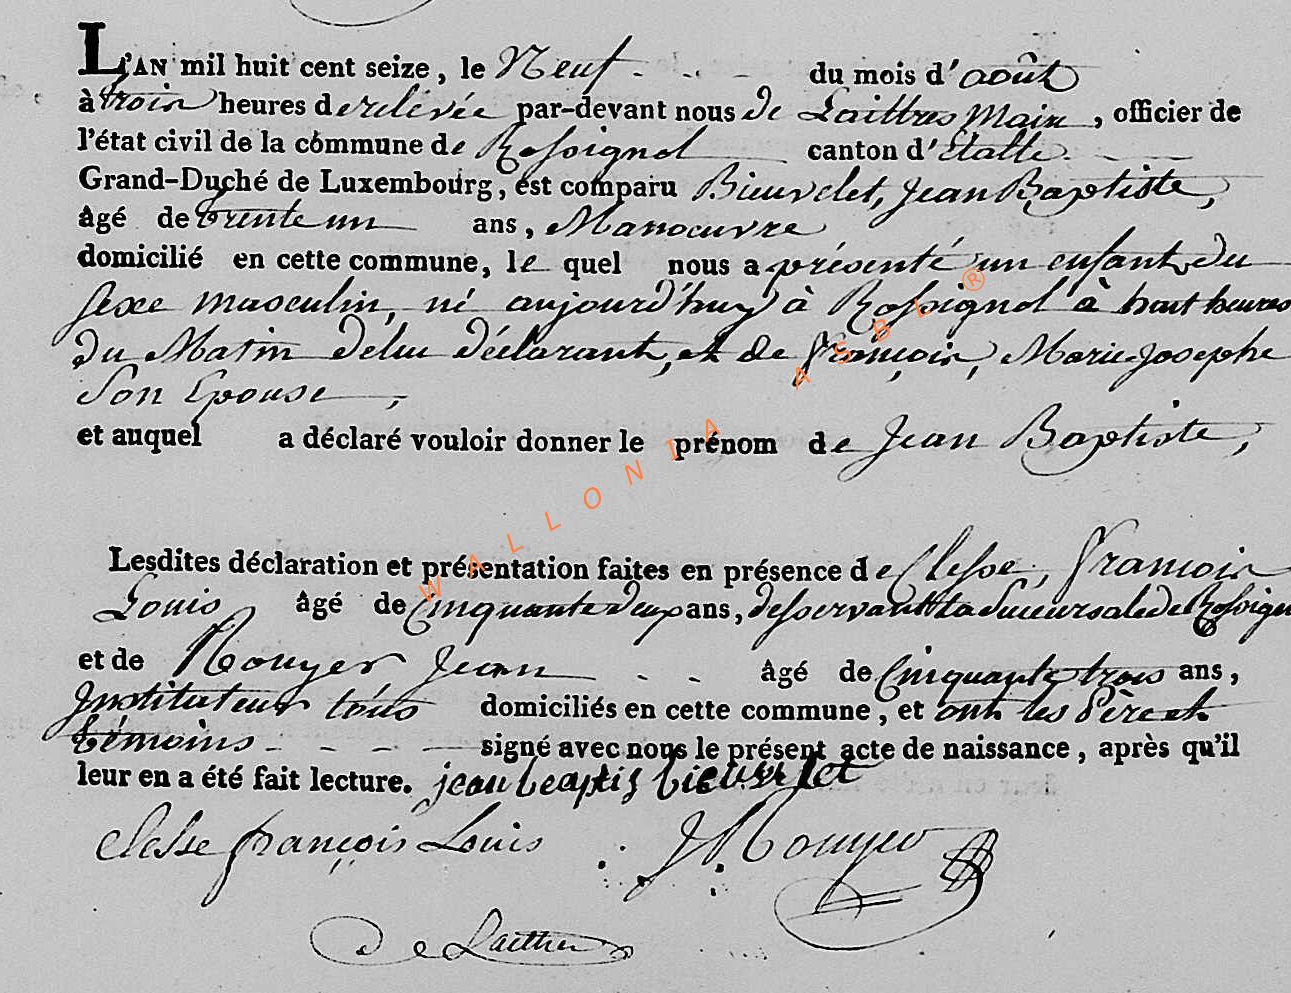 L'AN mil huit cent seize, le Neuf - - - du mois d'août
à trois heures de relévée par-devant nous de Laittres Maire, officier de
l'état civil de la commune de Rossignol canton d'Etalle - -
Grand-Duché de Luxembourg, est comparu Bieuvelet, Jean Baptiste,
âgé de trente un ans, Manoeuvre
domicilié en cette commune, le quel nous a présenté un enfant du
sexe masculin, né aujourd'huy à Rossignol à huit heures
du Matin de lui déclarant, et de françois, Marie-Josephe
Son Epouse,
et auquel a déclaré vouloir donner le prénom de Jean Baptiste,
WALLONIA ASBL ®
Lesdites déclaration et présentation faites en présence de Clesse, françois
Louis, âgé de Cinquante deux ans, desservant la Succursale de Rossignol
et de Rouyer Jean - - âgé de Cinquante trois ans,
Instituteur tous domiciliés en cette commune, et ont les Père et
témoins - - - - signé avec nous le présent acte de naissance, après qu'il
leur en a été fait lecture. jean baptis bieuvlet
Clesse françois Louis J Rouyer
De Laittres